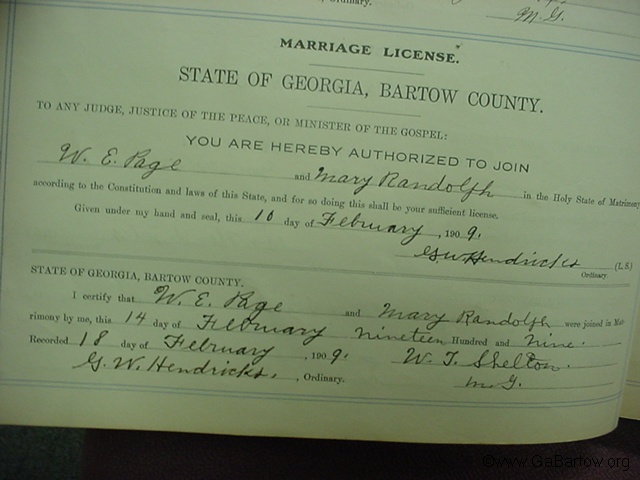 , Ordinary.
M. G.
MARRIAGE LICENSE.
STATE OF GEORGIA, BARTOW COUNTY.
TO ANY JUDGE, JUSTICE OF THE PEACE, OR MINISTER OF THE GOSPEL:
YOU ARE HEREBY AUTHORIZED TO JOIN
W. E. Page and Mary Randolph in the Holy State of Matrimony
according to the Constitution and laws of this State, and for so doing this shall be your sufficient license.
Given under my hand and seal, this 10 day of February, 1909.
G. W. Hendricks (L.S)
Ordinary.
STATE OF GEORGIA, BARTOW COUNTY.
I certify that W. E. Page and Mary Randolph were joined in Mat-
rimony by me, this 14 day of February nineteen Hundred and nine.
Recorded 18 day of February, 1909. W. T. Shelton.
G. W. Hendricks., Ordinary. M. G.
©www.GaBartow.org